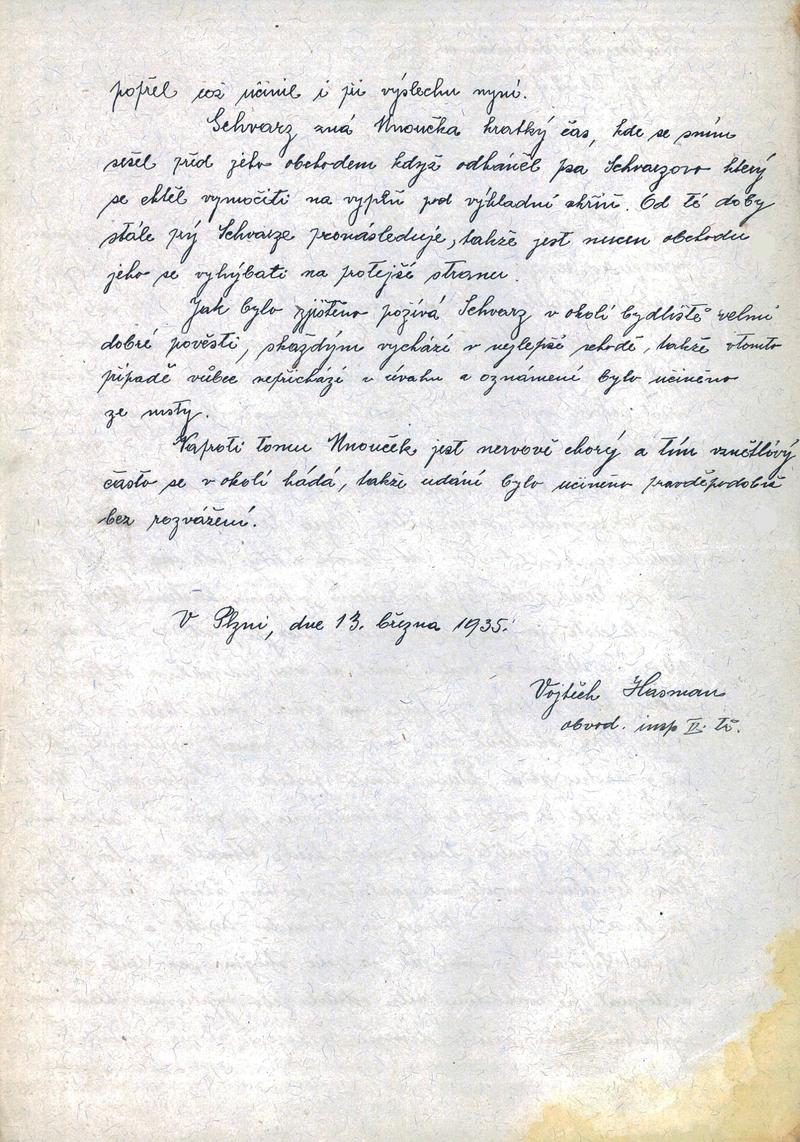 popřel což učinil i při výslechu nyní.
Schvarz zná Mnoučka kratký čas, kde se sním
sešel před jeho obchodem když odháněl psa Schvarzovo který
se chtěl vymočiti na výplň pod výkladní skříň. Od té doby
stále prý Schvarze pronásleduje, takže jest nucen obchodu
jeho se vyhýbati na protejší stranu.
Jak bylo zjištěno požívá Schvarz v okolí bydliště velmi
dobré pověsti, skaždým vychází v nejlepší shodě, takže vtomto
případě vůbec nepřichází v úvahu a oznámení bylo učiněno
ze msty.
Naproti tomu Mnouček jest nervově chorý a tím vznětlivý
často se v okolí hádá, takže udání bylo učiněno pravděpodobně
bez rozvážení.
V Plzni, dne 13. března 1935.
Vojtěch Hasman
obvod. insp II. tř.